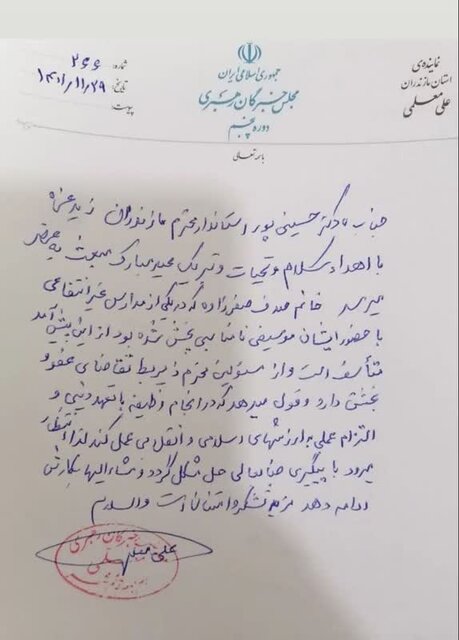 نماینده‌ی
استان مازندران
علی معلمی
جمهوری اسلامی ایران
مجلس خبرگان رهبری
دوره پنجم
شماره: ۲۶۶
تاریخ: ۱۴۰۱/۱۱/۲۹
پیوست:
باسمه تعالی
جناب دکتر حسینی پور استاندار محترم مازندران زید عزه
با اهداء سلام و تحیات و تبریک عید مبارک مبعث به عرض
میرسد خانم صدف صفرزاده که در یکی از مدارس غیر انتفاعی
با حضور ایشان موسیقی نامناسبی پخش شده بود از این پیش آمد
متأسف است و از مسئولین محترم ذیربط تقاضای عفو و
بخشش دارد و قول میدهد که در انجام وظیفه با تعهد دینی و
التزام عملی به ارزشهای اسلامی و انقلابی عمل کند لذا انتظار
میرود با پیگیری جنابعالی حل مشکل گردد و مشارالیها بکارش
ادامه دهد مزید تشکر و امتنان است والسلام
علی معلمی
خبرگان رهبری